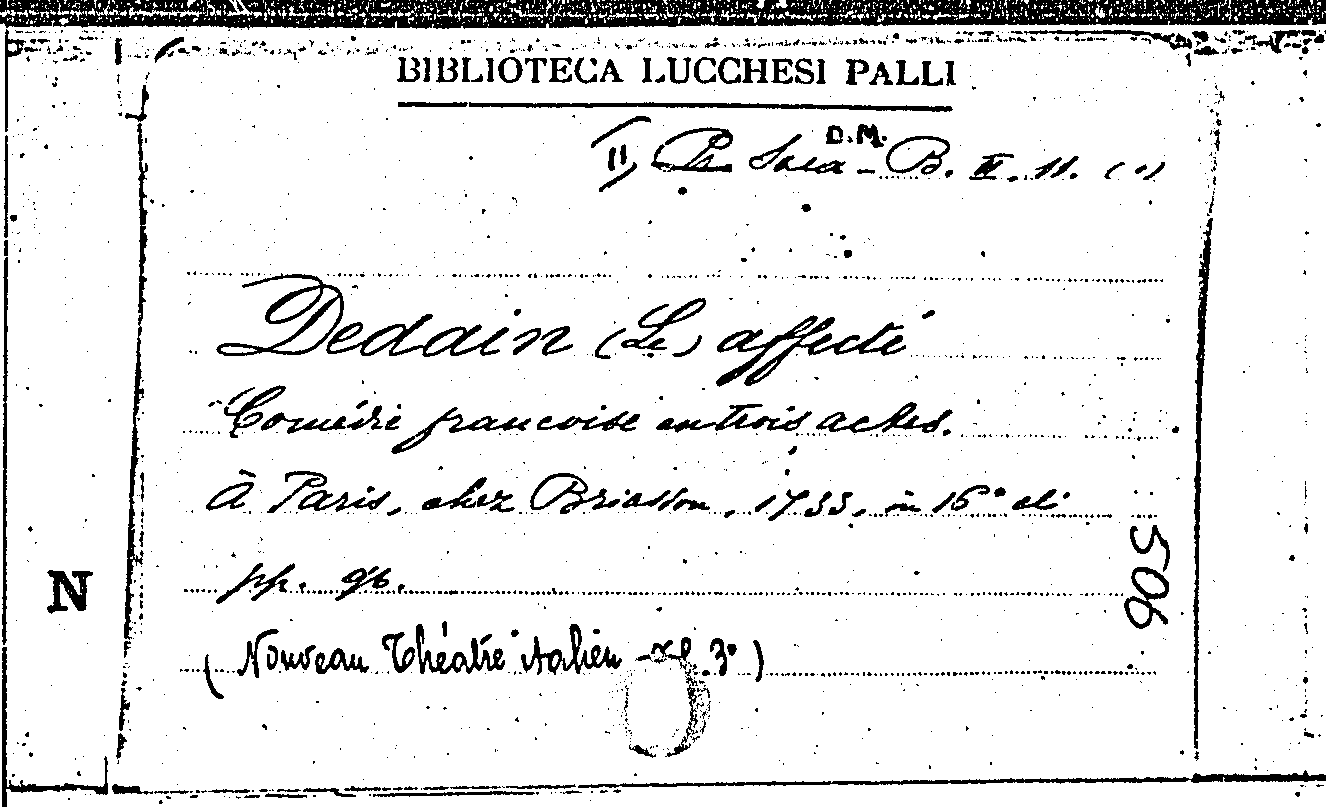 BIBLIOTECA LUCCHESI PALLI
D.M.
II) Sala - B. III. 11. (1)
Dedain (Le) affecté
Comédie françoise en trois actes.
à Paris, chez Briasson, 1733, in 16° di
pp. 96.
(Nouveau Théâtre italien - 3°)
N
506